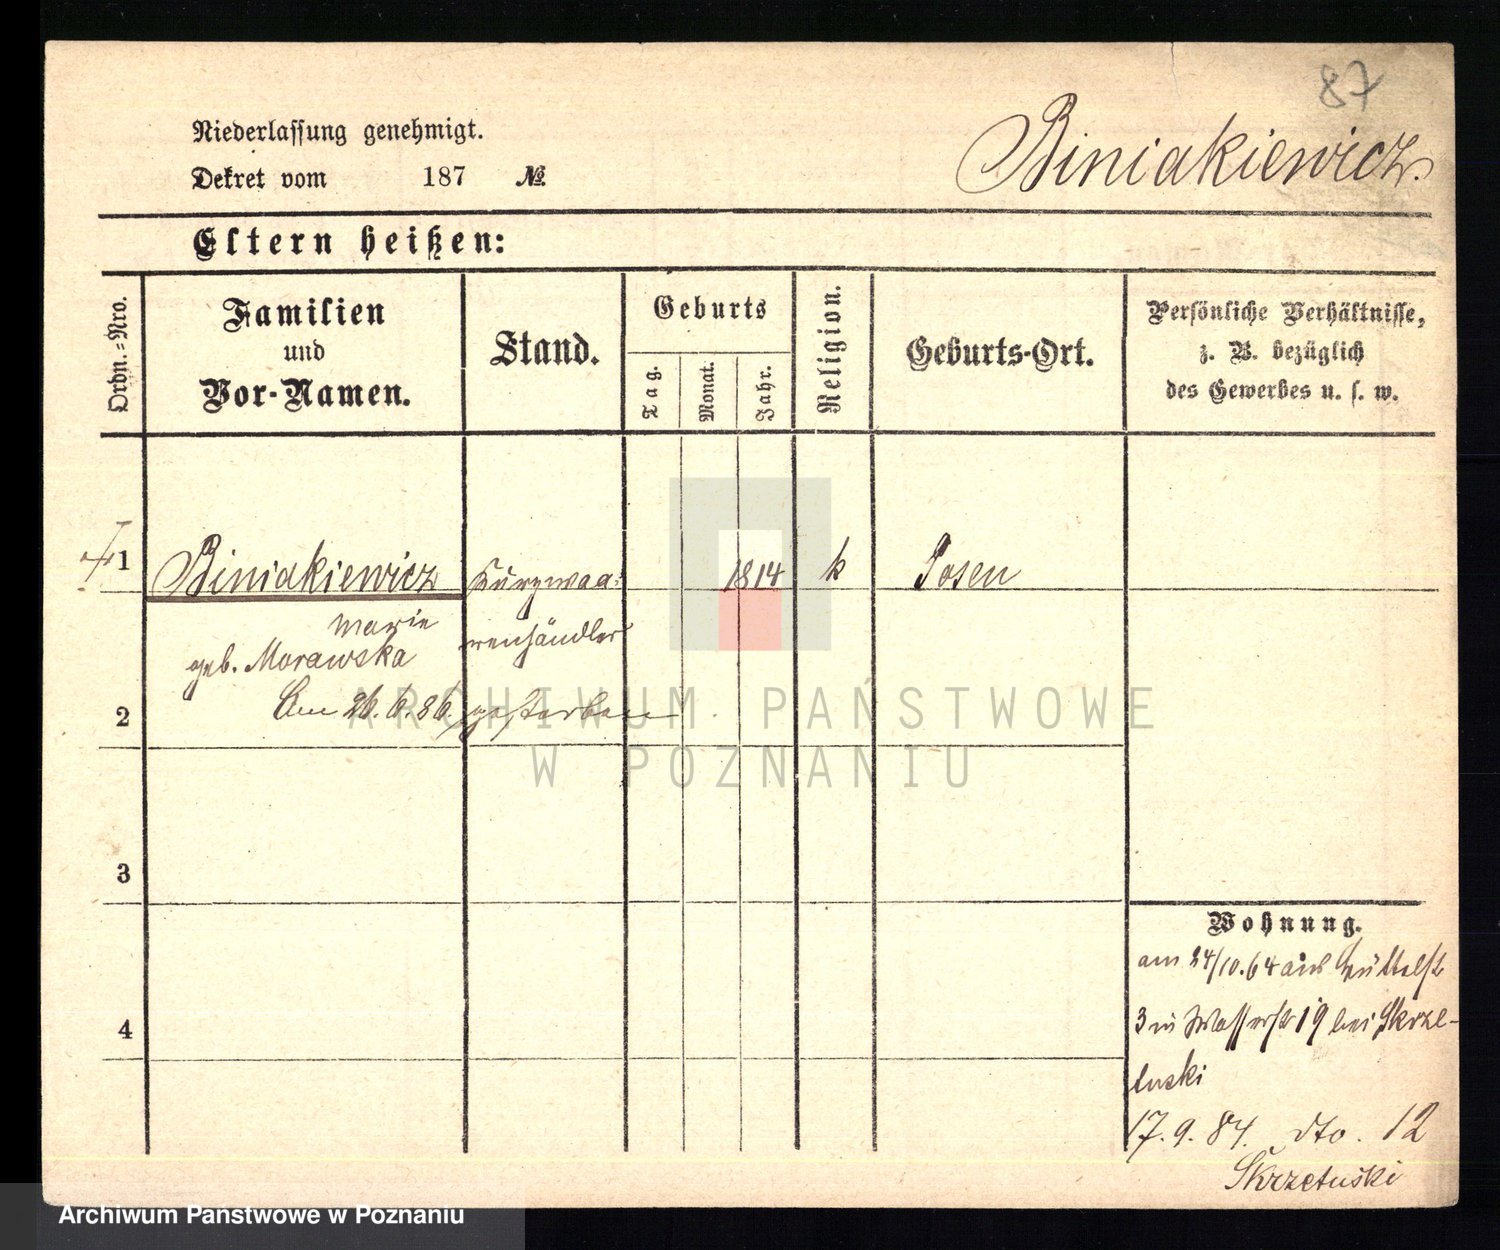 87
Niederlassung genehmigt.
Dekret vom 187 №
Biniakiewicz.
Eltern heißen:
Ordn.-Nro.
Familien
und
Vor-Namen.
Stand.
Geburts
Tag.
Monat.
Jahr.
Religion.
Geburts-Ort.
Persönliche Verhältnisse,
z. B. bezüglich
des Gewerbes u. s. w.
1 Biniakiewicz Kurzwaa- 1814 k Posen
Marie renhändler
geb. Morawska
2 Am 26. 6. 86. gestorben
ARCHIWUM PAŃSTWOWE
W POZNANIU
3
4
Wohnung.
am 24/10.64 aus Büttelstr
3 in Wasserstr 19 bei Skrze-
tuski
17. 9. 84. dto. 12
Skrzetuski
Archiwum Państwowe w Poznaniu